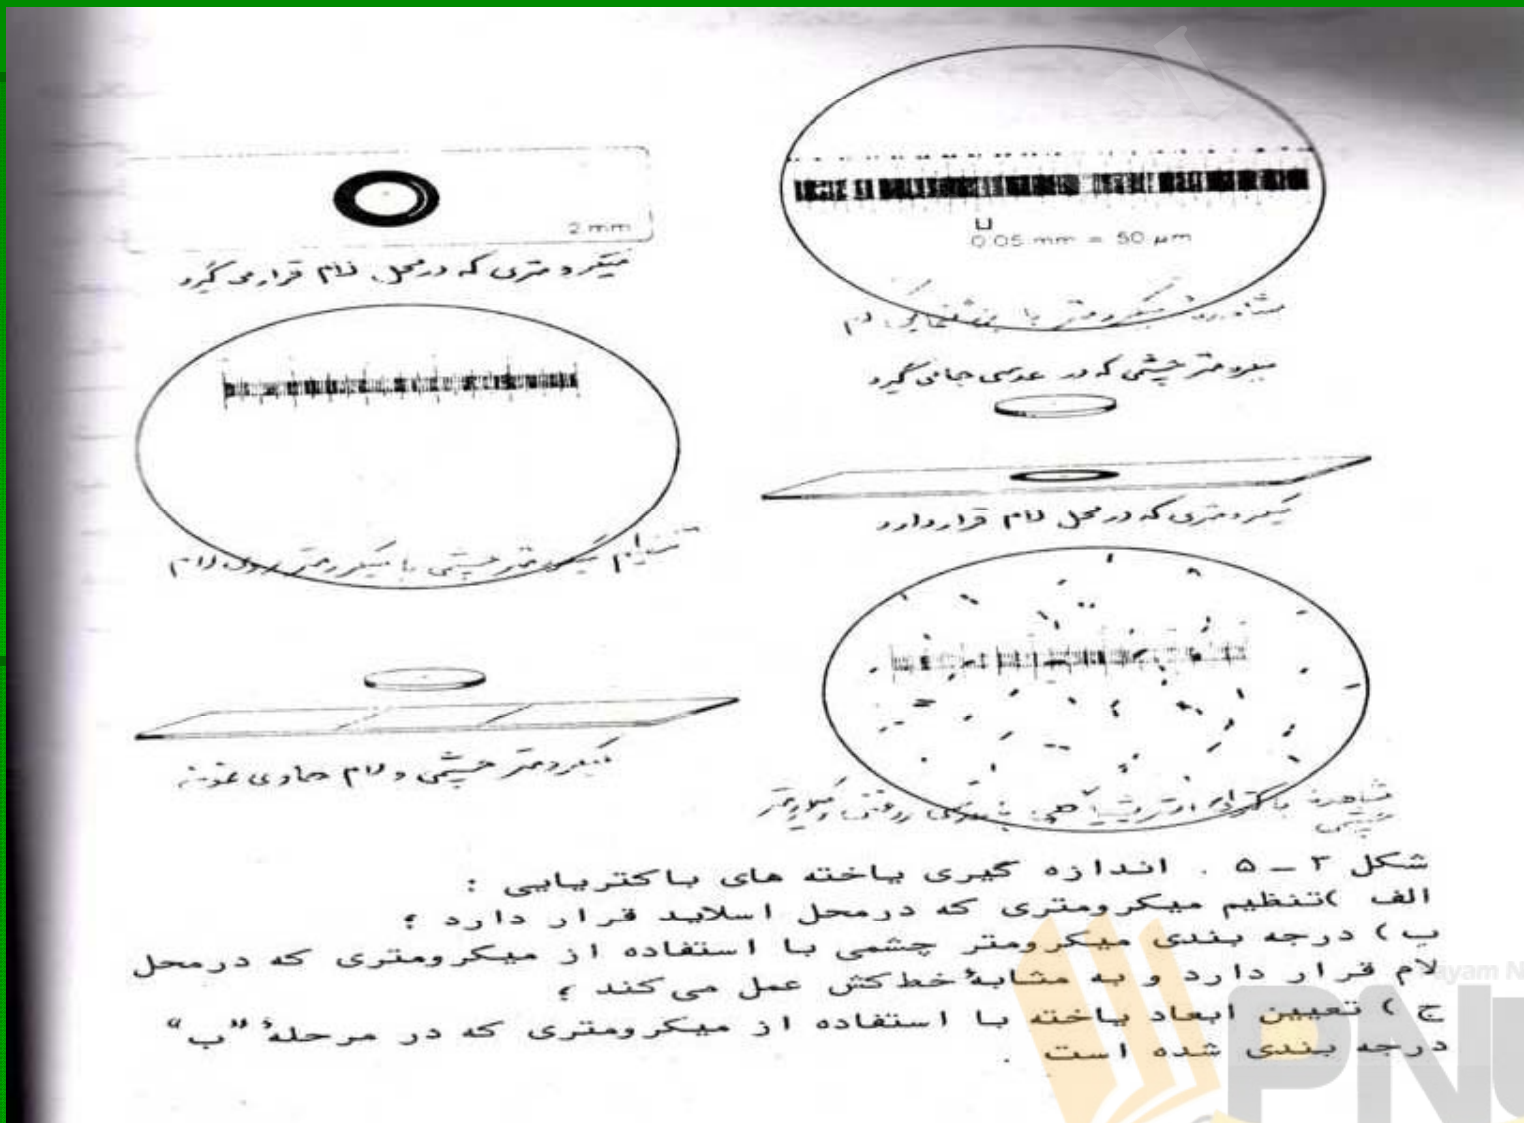 2 mm
میکرومتری که در محل لام قرار می گیرد
0.05 mm = 50 µm
میکرومتر چشمی که در عدسی جا می گیرد
میکرومتری که در محل لام قرار دارد
میکرومتر چشمی با میکرومتر روی لام
میکرومتر چشمی و لام حاوی نمونه
شکل ۳ – ۵ . اندازه گیری یاخته های باکتریایی :
الف )تنظیم میکرومتری که درمحل اسلاید قرار دارد ؛
ب ) درجه بندی میکرومتر چشمی با استفاده از میکرومتری که درمحل
لام قرار دارد و به مشابهٔ خط کش عمل می کند ؛
ج ) تعیین ابعاد یاخته با استفاده از میکرومتری که در مرحلهٔ "ب"
درجه بندی شده است .
PNU